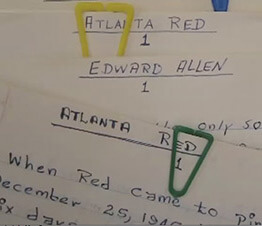 ATLANTA RED
1
EDWARD ALLEN
1
ATLANTA RED
only so
1
When Red came to
December 25, 19
days